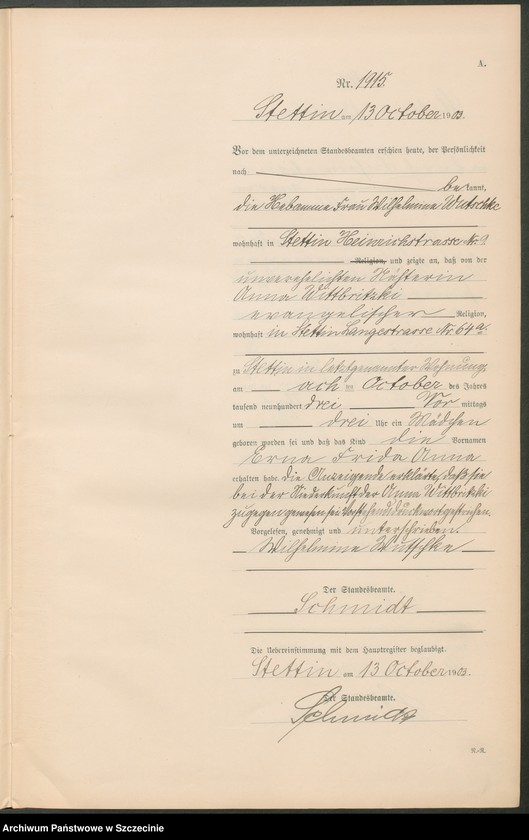 A.
Nr. 1915.
Stettin am 13 October 1903.
Vor dem unterzeichneten Standesbeamten erschien heute, der Persönlichkeit
nach
bekannt,
die Hebamme Frau Wilhelmine Wutschke
wohnhaft in Stettin Heinrichstrasse Nr. 9
Religion, und zeigte an, daß von der
unverehelichten Nähterin
Anna Wittbritzki
evangelischer Religion,
wohnhaft in Stettin Langestrasse Nr. 64a
zu Stettin in letztgenannter Wohnung,
am acht ten October des Jahres
tausend neunhundert drei Vor mittags
um drei Uhr ein Mädchen
geboren worden sei und daß das Kind die Vornamen
Erna Frida Anna
erhalten habe. Die Anzeigende erklärte, daß sie
bei der Niederkunft der Anna Wittbritzki
zugegen gewesen sei. Vorstehend Druckwort gestrichen.
Vorgelesen, genehmigt und unterschrieben.
Wilhelmine Wutschke
Der Standesbeamte.
Schmidt
Die Uebereinstimmung mit dem Hauptregister beglaubigt.
Stettin am 13 October 1903.
Der Standesbeamte.
Schmidt
Archiwum Państwowe w Szczecinie